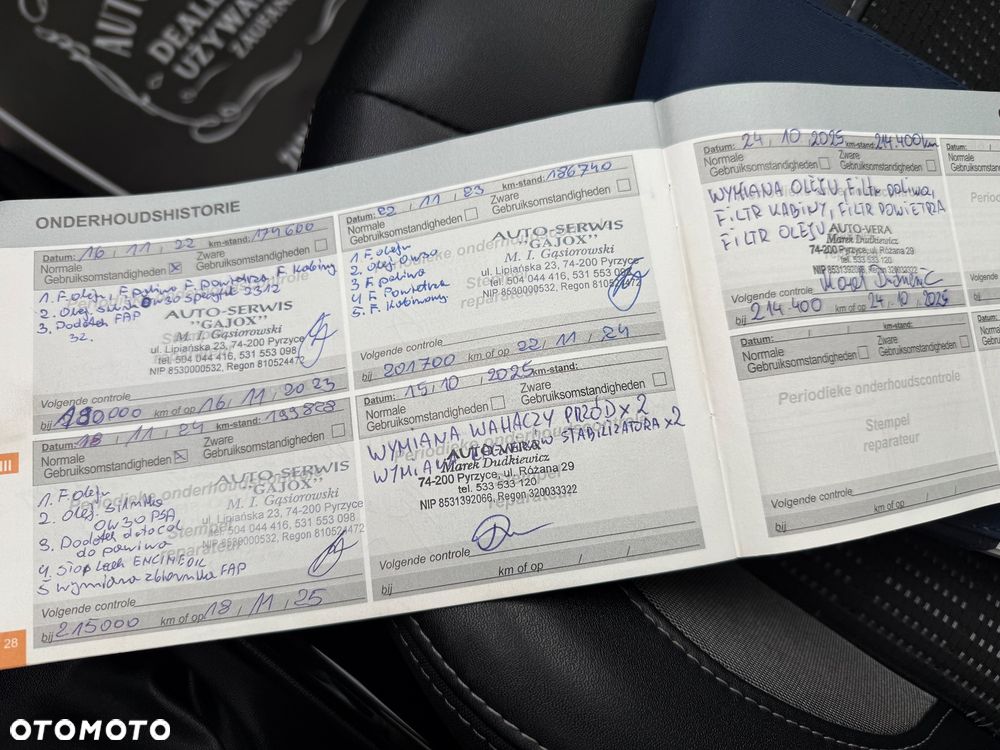 AUTO
DEALER
UŻYWAN
ONDERHOUDSHISTORIE
Datum: 16, 11, 22 km-stand: 174600
Normale
Gebruiksomstandigheden
Zware
Gebruiksomstandigheden
1. F. oleju, F paliwa F. Powietrza F. Kabiny
2. Olej 0w30 2312
3. Dodatek FAP
32.
AUTO-SERWIS
"GAJOX"
M. I. Gąsiorowski
ul. Lipiańska 23, 74-200 Pyrzyce
tel. 504 044 416, 531 553 098
NIP 8530000532, Regon 810524472
Volgende controle
bij 180000 km of op 16, 11, 2023
Datum: 22, 11, 23 km-stand: 186740
Normale
Gebruiksomstandigheden
Zware
Gebruiksomstandigheden
1. F. oleju
2. Olej 0w30
3 F paliwa
4 F Powietrza
5. F. Kabinowy
AUTO-SERWIS
"GAJOX"
M. I. Gąsiorowski
ul. Lipiańska 23, 74-200 Pyrzyce
tel. 504 044 416, 531 553 098
NIP 8530000532, Regon 810524472
Volgende controle
bij 201700 km of op 22, 11, 24
Datum: 18, 11, 24 km-stand: 199828
Normale
Gebruiksomstandigheden
Zware
Gebruiksomstandigheden
1. F. oleju
2. Olej Silnika
0W30 PSA
3. Dodatek
do paliwa
4 Stop Leak ENGINE OIL
5 Wymiana zbiornika FAP
AUTO-SERWIS
"GAJOX"
M. I. Gąsiorowski
ul. Lipiańska 23, 74-200 Pyrzyce
tel. 504 044 416, 531 553 098
NIP 8530000532, Regon 810524472
Volgende controle
bij 215000 km of op 18, 11, 25
Datum: 15, 10, 2025 km-stand:
Normale
Gebruiksomstandigheden
Zware
Gebruiksomstandigheden
WYMIANA WAHACZY PRZÓD x 2
WYMIANA STABILIZATORA x2
AUTO-VERA
Marek Dudkiewicz
74-200 Pyrzyce, ul. Różana 29
tel. 533 533 120
NIP 8531392066, Regon 320033322
Volgende controle
bij km of op / /
Datum: 24, 10, 2025 km-stand: 214.400km
Normale
Gebruiksomstandigheden
Zware
Gebruiksomstandigheden
WYMIANA OLEJU, FILTR PALIWA,
FILTR KABINY, FILTR POWIETRZA
FILTR OLEJU
AUTO-VERA
Marek Dudkiewicz
74-200 Pyrzyce, ul. Różana 29
tel. 533 533 120
Volgende controle
bij 214.400 km of op 24, 10, 2025
Datum: / / km-stand:
Normale
Gebruiksomstandigheden
Zware
Gebruiksomstandigheden
Periodieke onderhoudscontrole
Stempel
reparateur
Volgende controle
bij km of op / /
Datum:
Normale
Gebruiksomst
Volgende
bij
Datum:
Normale
Gebruik
Volge
bij
III
28
OTOMOTO